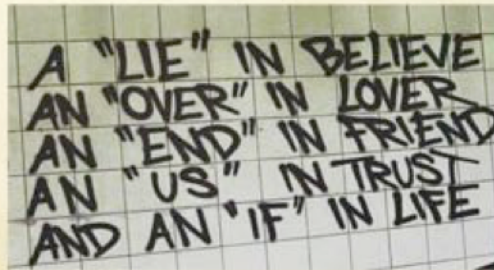 A "LIE" IN BELIEVE
AN "OVER" IN LOVER
AN "END" IN FRIEND
AN "US" IN TRUST
AND AN "IF" IN LIFE